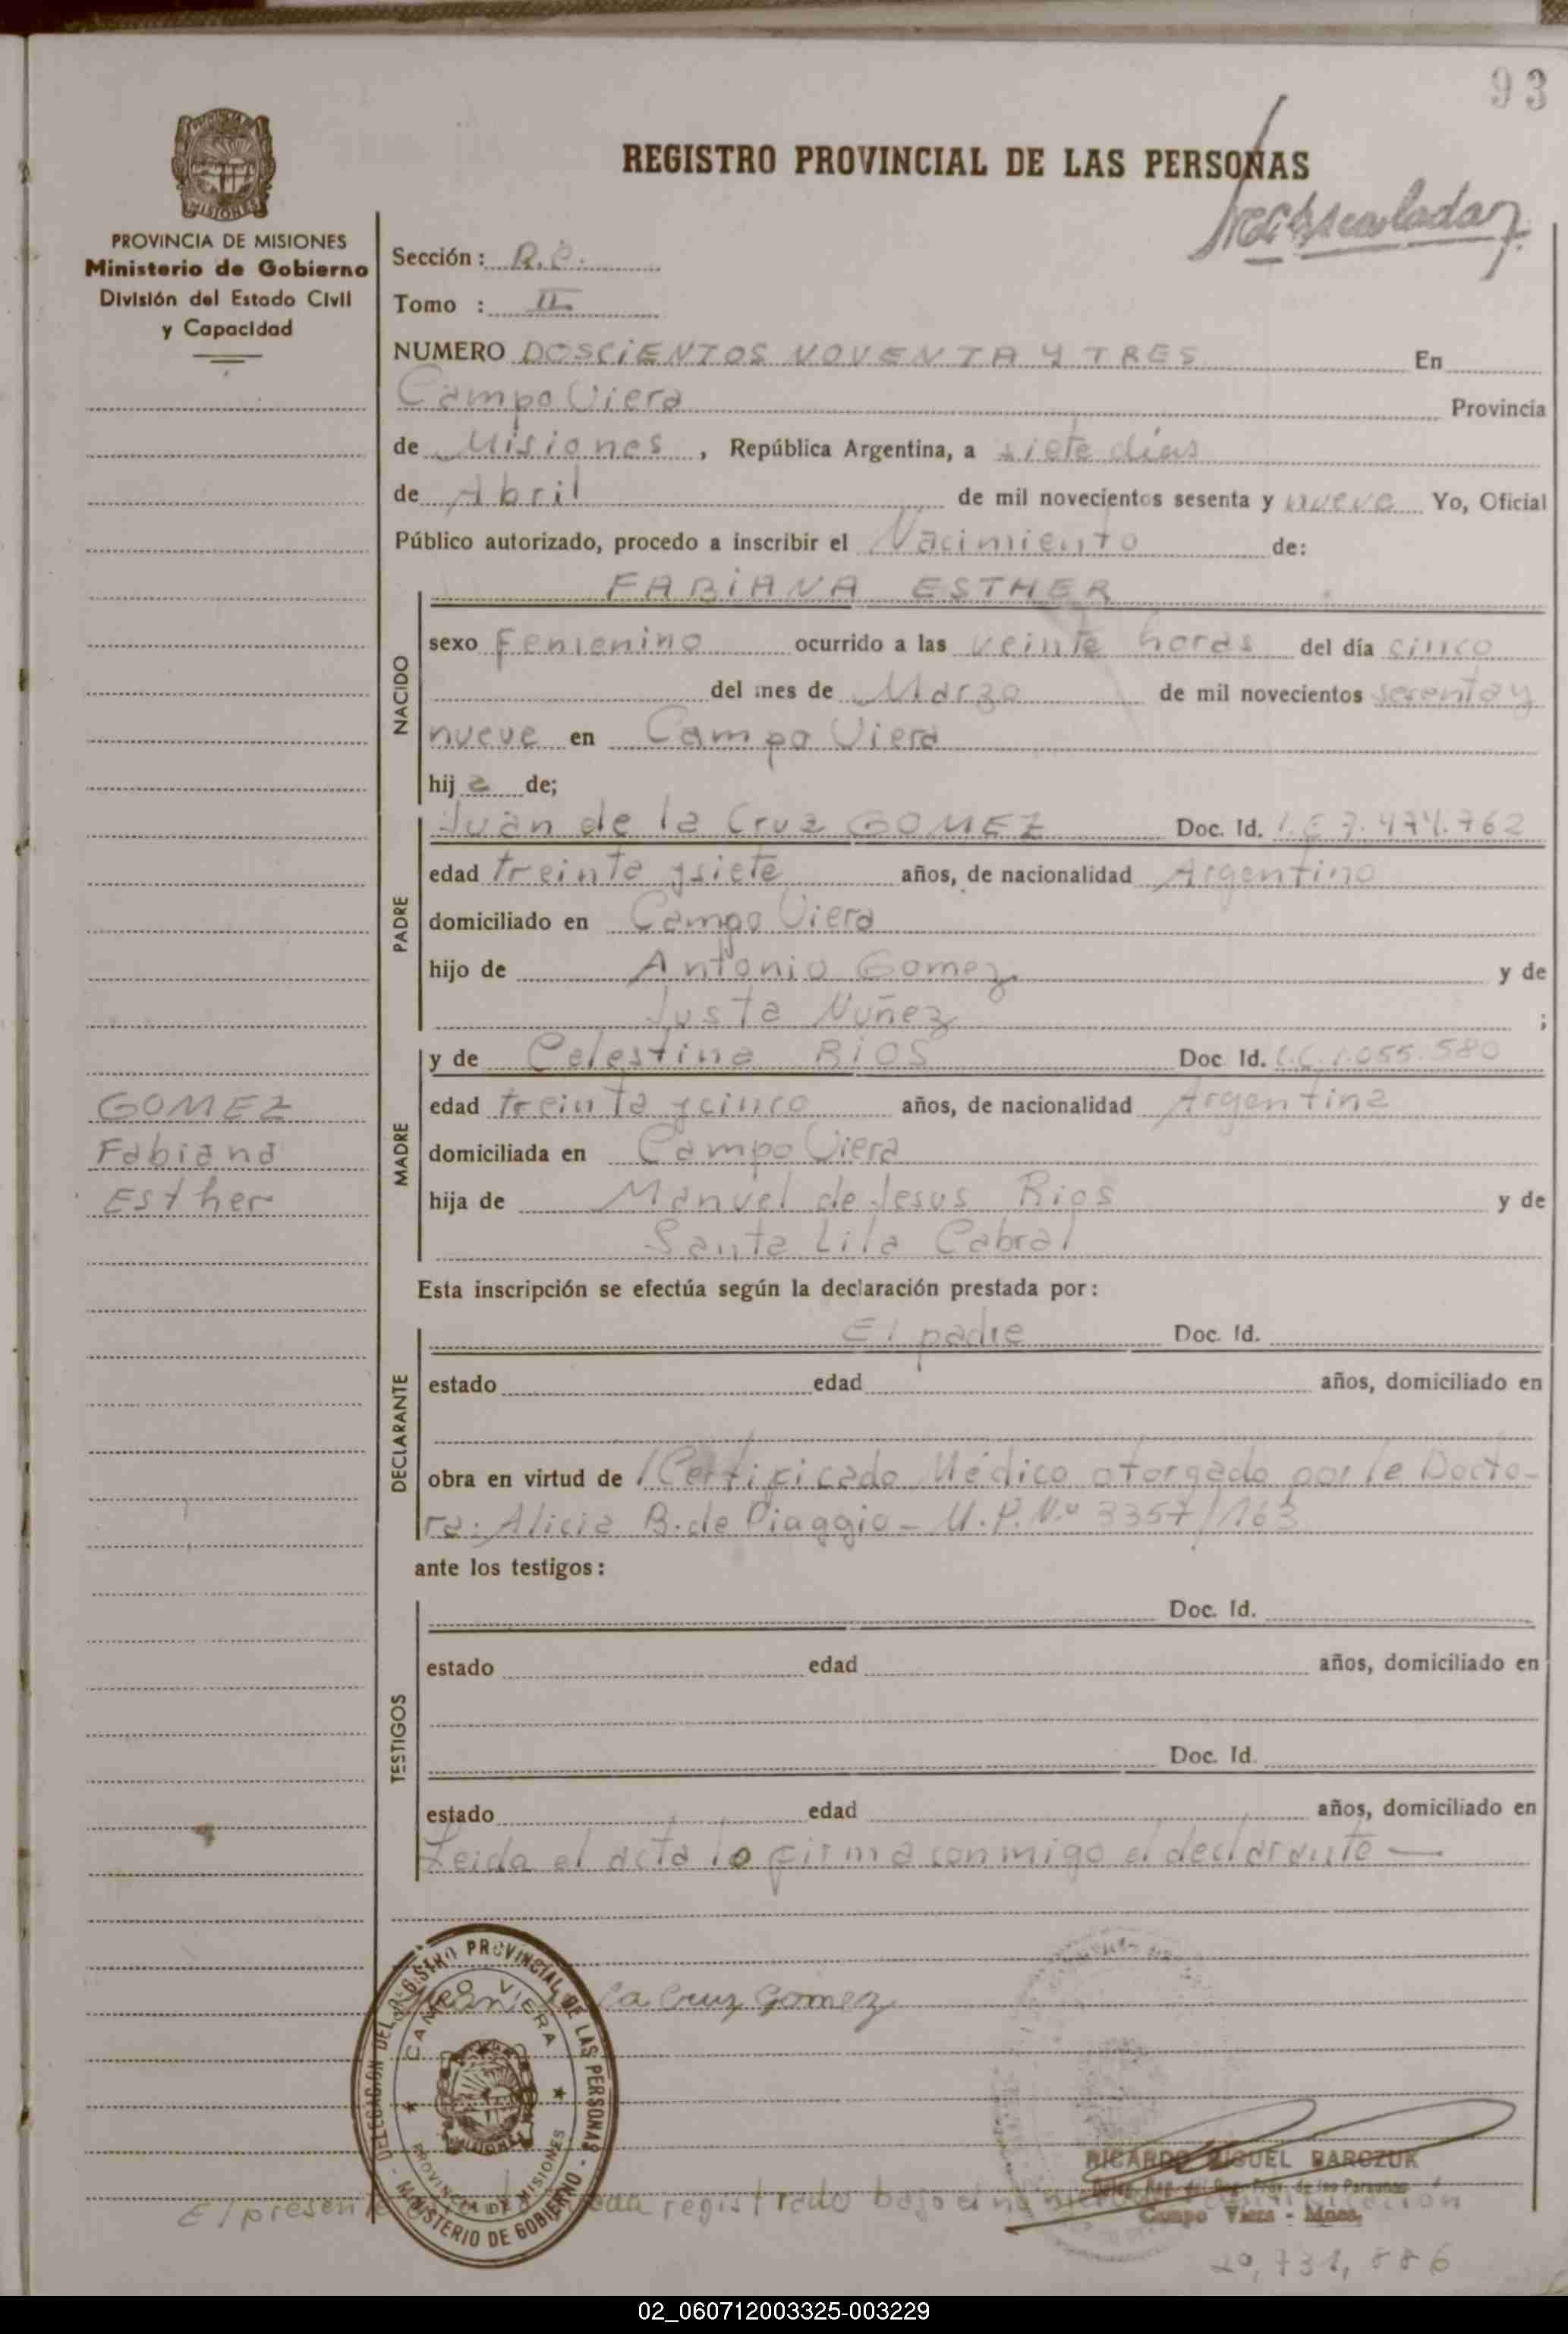 93
REGISTRO PROVINCIAL DE LAS PERSONAS
MISIONES
PROVINCIA DE MISIONES
Ministerio de Gobierno
División del Estado Civil
y Capacidad
Sección: R.C.
Tomo : II
NUMERO DOSCIENTOS NOVENTA Y TRES En
Campo Viera Provincia
de Misiones, República Argentina, a siete días
de Abril de mil novecientos sesenta y nueve Yo, Oficial
Público autorizado, procedo a inscribir el Nacimiento de:
NACIDO
FABIANA ESTHER
sexo Femenino ocurrido a las veinte horas del día cinco
del mes de Marzo de mil novecientos sesenta y
nueve en Campo Viera
hij a de;
PADRE
Juan de la Cruz GOMEZ Doc. Id. 7.474.762
edad treinta y siete años, de nacionalidad Argentino
domiciliado en Campo Viera
hijo de Antonio Gomez y de
Justa Nuñez ;
MADRE
y de Celestina RIOS Doc Id. L.C. 1.055.580
edad treinta y cinco años, de nacionalidad Argentina
domiciliada en Campo Viera
hija de Manuel de Jesus Rios y de
Santa Lila Cabral
GOMEZ
Fabiana
Esther
Esta inscripción se efectúa según la declaración prestada por:
DECLARANTE
El padre Doc. Id.
estado edad años, domiciliado en
obra en virtud de Certificado Médico otorgado por la Docto-
ra: Alicia B. de Piaggio - M.P. Nº 3357/163
ante los testigos:
TESTIGOS
Doc. Id.
estado edad años, domiciliado en
Doc. Id.
estado edad años, domiciliado en
Leida el acta lo firma conmigo el declarante —
Juan la Cruz Gomez
DELEGACION DEL REGISTRO PROVINCIAL DE LAS PERSONAS - MINISTERIO DE GOBIERNO -
CAMPO VIERA
PROVINCIA DE MISIONES
RICARDO MIGUEL BARCZUK
Campo Viera - Mnes.
El presente registrado bajo el
02_060712003325-003229